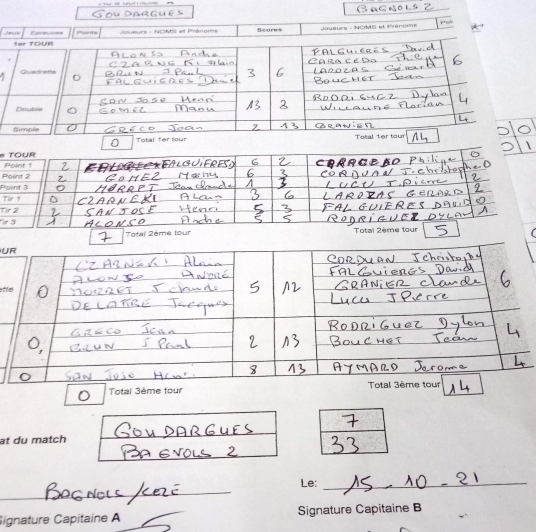 GOUDARGUES BAGNOLS 2
Jeux Epreuves Points Joueurs - NOMS et Prénoms Scores Joueurs - NOMS et Prénoms
1er TOUR
Quadrette 0 3 6 6
ALONSO André FALGUIERES David
CZARNEKI Alain CARACEDO Philippe
BRUN J Paul LAROZAS Gérard
FALGUIERES Daniel BOUCHET Jean
Doublette 0 SAN JOSE Henri 13 8 RODRIGUEZ Dylan 4
GOMEZ Manu Florian
Simple 0 GRECO Jean 2 13 GRANIER 4
0 Total 1er tour Total 1er tour 14
e TOUR
Point 1 2 FALGUIERES D 6 2 CARACEDO Philippe 0
Point 2 2 GOMEZ Manu 6 3 CORDUAN J-Christophe 0
Point 3 0 MORRET Jean claude 1 3 LUCU J.Pierre 2
Tir 1 0 CZARNEKI Alain 3 6 LAROZAS GERARD 2
Tir 2 2 SAN JOSE Henri 5 3 FALGUIERES DAVID 0
Tir 3 1 ALONSO André 5 5 RODRIGUEZ DYLAN 1
7 Total 2ème tour Total 2ème tour 5
UR
CZARNEKI Alain CORDUAN J Christophe
ALONSO ANDRÉ FALGUIERES David
ette 0 MORRET J claude 5 12 GRANIER claude 6
DELATTRE Jacques Lucu JPierre
0 GRECO Jean 2 13 RODRIGUEZ Dylan 4
BRUN J Paul BOUCHET Jean
0 SAN JOSE Henri 8 13 AYMARD Jerome 4
0 Total 3ème tour Total 3ème tour 14
at du match GOUDARGUES 7
BAGNOLS 2 33
BAGNOLS/CEZE Le: 15-10-21
Signature Capitaine A Signature Capitaine B